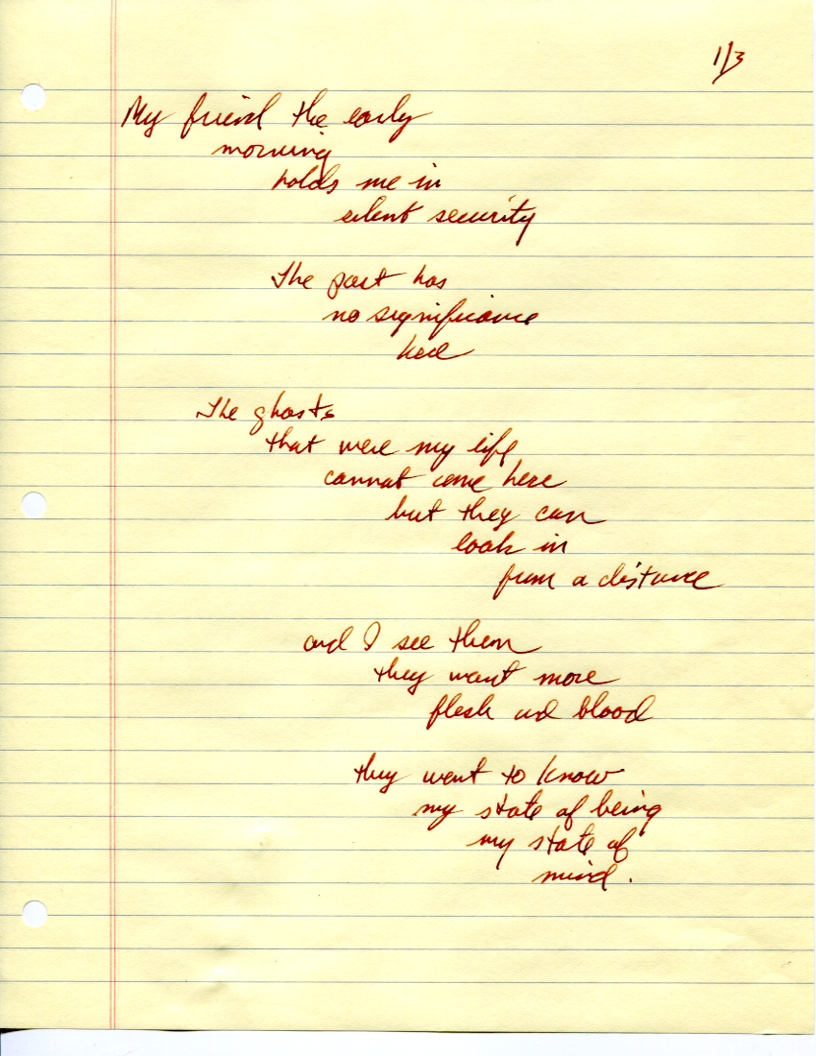 1/3
My friend the early
morning
holds me in
silent security
The past has
no significance
here
The ghosts
that were my life
cannot come here
but they can
look in
from a distance
and I see them
they want more
flesh and blood
they want to know
my state of being
my state of
mind.